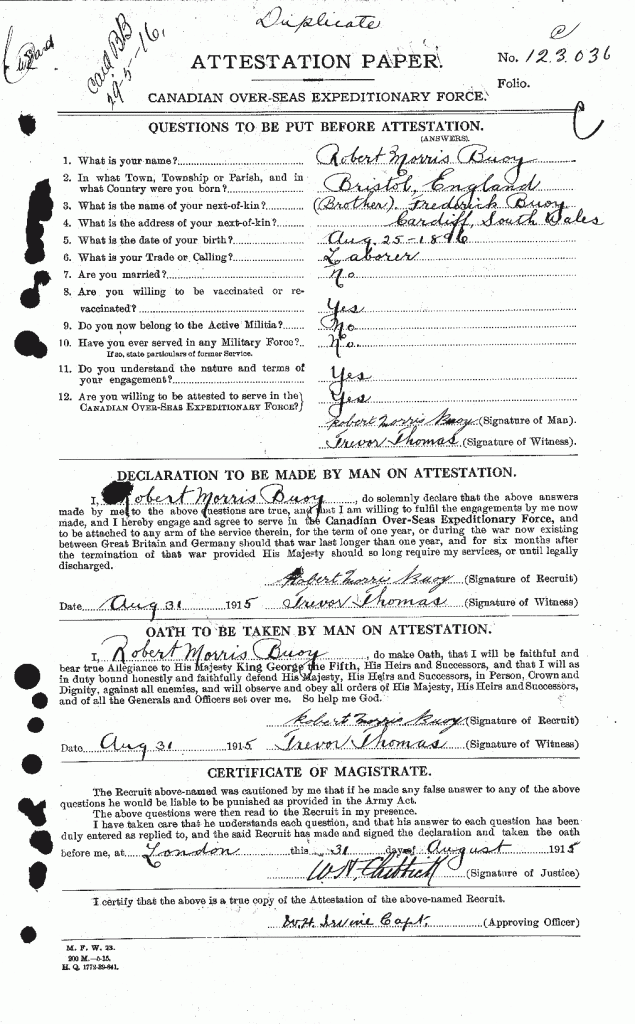 Duplicate
Card BB
29-5-16.
C
ATTESTATION PAPER.
No. 123036
Folio.
CANADIAN OVER-SEAS EXPEDITIONARY FORCE.
C
QUESTIONS TO BE PUT BEFORE ATTESTATION.
(ANSWERS).
1. What is your name? Robert Morris Buoy
2. In what Town, Township or Parish, and in
what Country were you born? Bristol, England
3. What is the name of your next-of-kin? (Brother). Frederick Buoy
4. What is the address of your next-of-kin? Cardiff, South Wales
5. What is the date of your birth? Aug. 25-1896
6. What is your Trade or Calling? Laborer
7. Are you married? No
8. Are you willing to be vaccinated or re-
vaccinated? Yes
9. Do you now belong to the Active Militia? No
10. Have you ever served in any Military Force? No.
If so, state particulars of former Service.
11. Do you understand the nature and terms of
your engagement? Yes
12. Are you willing to be attested to serve in the
CANADIAN OVER-SEAS EXPEDITIONARY FORCE? Yes
Robert Morris Buoy (Signature of Man).
Trevor Thomas (Signature of Witness).
DECLARATION TO BE MADE BY MAN ON ATTESTATION.
I, Robert Morris Buoy, do solemnly declare that the above answers
made by me to the above questions are true, and that I am willing to fulfil the engagements by me now
made, and I hereby engage and agree to serve in the Canadian Over-Seas Expeditionary Force, and
to be attached to any arm of the service therein, for the term of one year, or during the war now existing
between Great Britain and Germany should that war last longer than one year, and for six months after
the termination of that war provided His Majesty should so long require my services, or until legally
discharged.
Robert Morris Buoy (Signature of Recruit)
Date Aug 31 1915 Trevor Thomas (Signature of Witness)
OATH TO BE TAKEN BY MAN ON ATTESTATION.
I, Robert Morris Buoy, do make Oath, that I will be faithful and
bear true Allegiance to His Majesty King George the Fifth, His Heirs and Successors, and that I will as
in duty bound honestly and faithfully defend His Majesty, His Heirs and Successors, in Person, Crown and
Dignity, against all enemies, and will observe and obey all orders of His Majesty, His Heirs and Successors,
and of all the Generals and Officers set over me. So help me God.
Robert Morris Buoy (Signature of Recruit)
Date Aug 31 1915 Trevor Thomas (Signature of Witness)
CERTIFICATE OF MAGISTRATE.
The Recruit above-named was cautioned by me that if he made any false answer to any of the above
questions he would be liable to be punished as provided in the Army Act.
The above questions were then read to the Recruit in my presence.
I have taken care that he understands each question, and that his answer to each question has been
duly entered as replied to, and the said Recruit has made and signed the declaration and taken the oath
before me, at London this 31 day of August 1915
(Signature of Justice)
I certify that the above is a true copy of the Attestation of the above-named Recruit.
W.H. Irvine Capt. (Approving Officer)
M. F. W. 23.
200 M.—6-15.
H. Q. 1772-39-841.